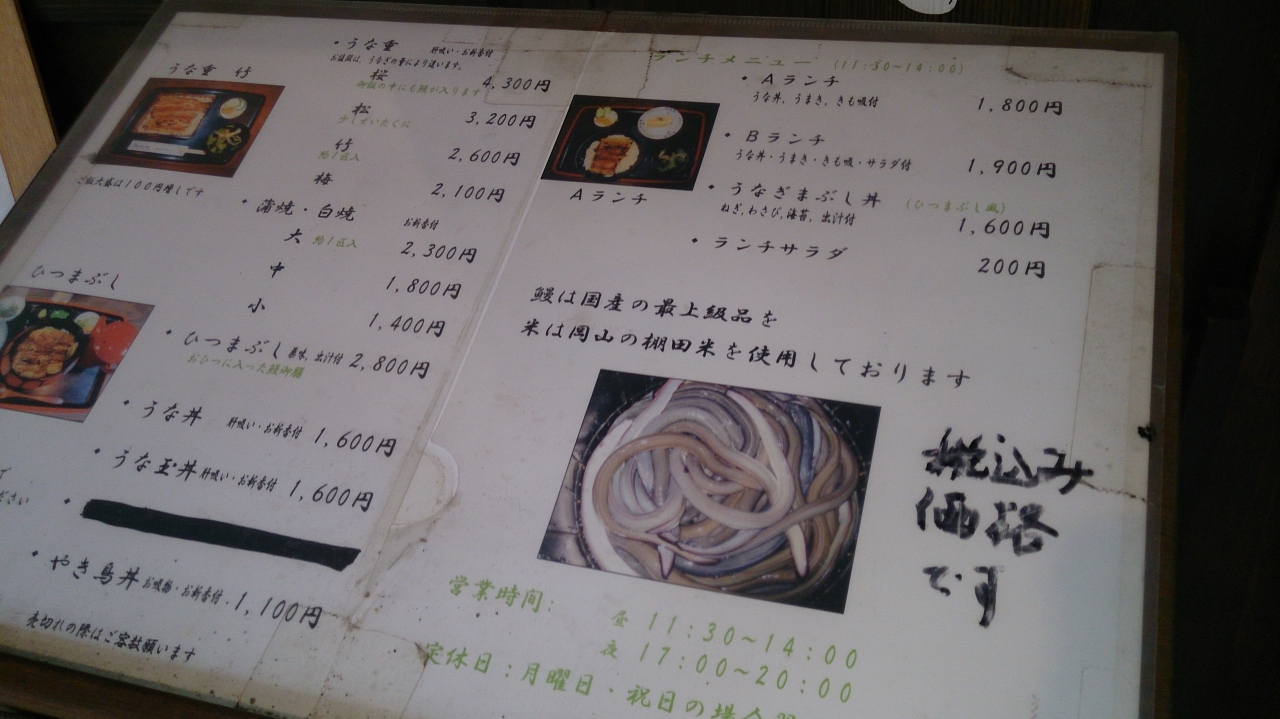 うな重 竹
ご飯大盛は100円増しです
・うな重 肝吸い・お新香付
桜 4,300円
松 3,200円
少しぜいたくに
竹 2,600円
梅 2,100円
・蒲焼・白焼 お新香付
大 2,300円
中 1,800円
小 1,400円
ひつまぶし
・ひつまぶし 薬味、出汁付 2,800円
おひつに入った鰻御飯
・うな丼 肝吸い・お新香付 1,600円
・うな玉丼 肝吸い・お新香付 1,600円
ださい
・やき鳥丼 お吸物・お新香付 1,100円
売切れの際はご容赦願います
ランチメニュー (11:30~14:00)
・Aランチ 1,800円
うな丼、うまき、きも吸付
・Bランチ 1,900円
うな丼・うまき・きも吸・サラダ付
Aランチ
・うなぎまぶし丼 (ひつまぶし風) 1,600円
ねぎ、わさび、海苔、出汁付
・ランチサラダ 200円
鰻は国産の最上級品を
米は岡山の棚田米を使用しております
税込み
価格
です
営業時間: 昼 11:30~14:00
夜 17:00~20:00
定休日:月曜日・祝日の場合